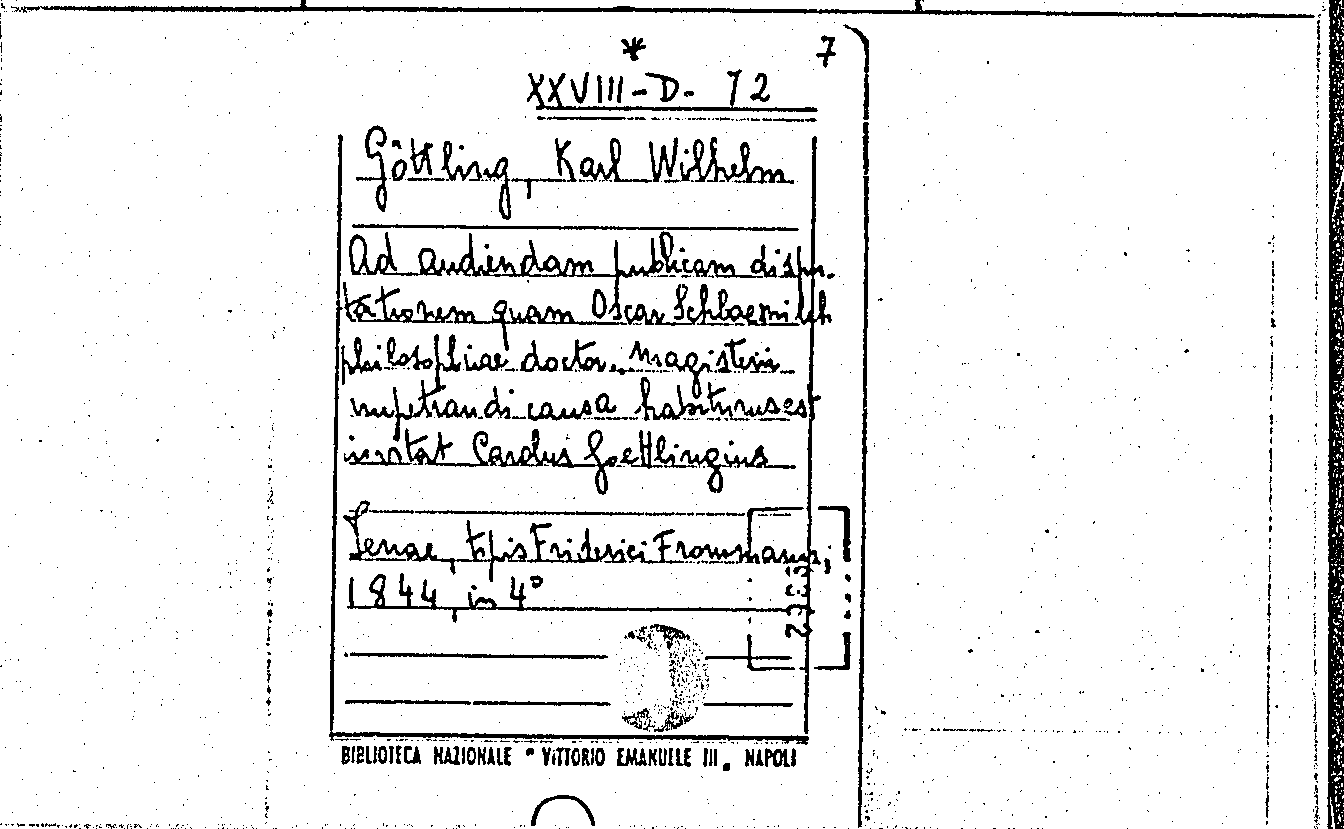 * 7
XXVIII-D- 72
Göttling, Karl Wilhelm
Ad audiendam publicam dispu-
tationem quam Oscar Schloemilch
philosophiae doctor magisterii
impetrandi causa habiturus est
invitat Carolus Goettlingius
Jenae, typis Friderici Frommanni,
1844, in 4°
BIBLIOTECA NAZIONALE "VITTORIO EMANUELE III" NAPOLI